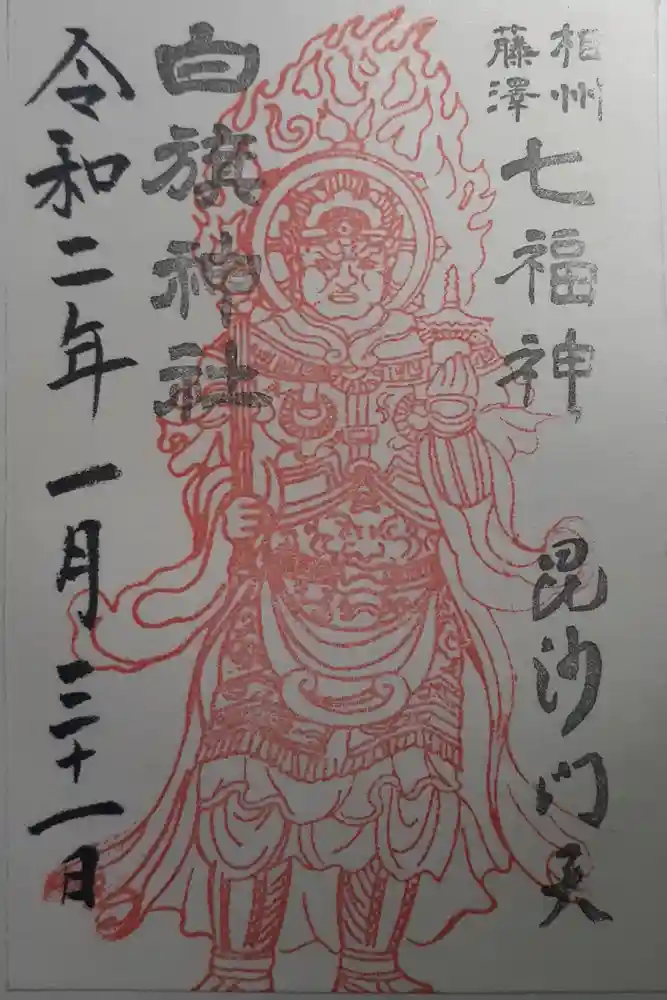 相州
藤澤
七福神
毘沙門天
白旗神社
令和二年一月三十一日